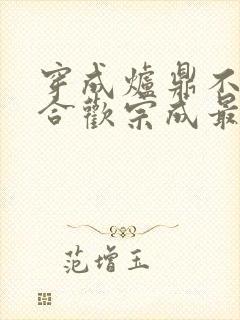 穿成爐鼎不
合歡宗成最
范增玉